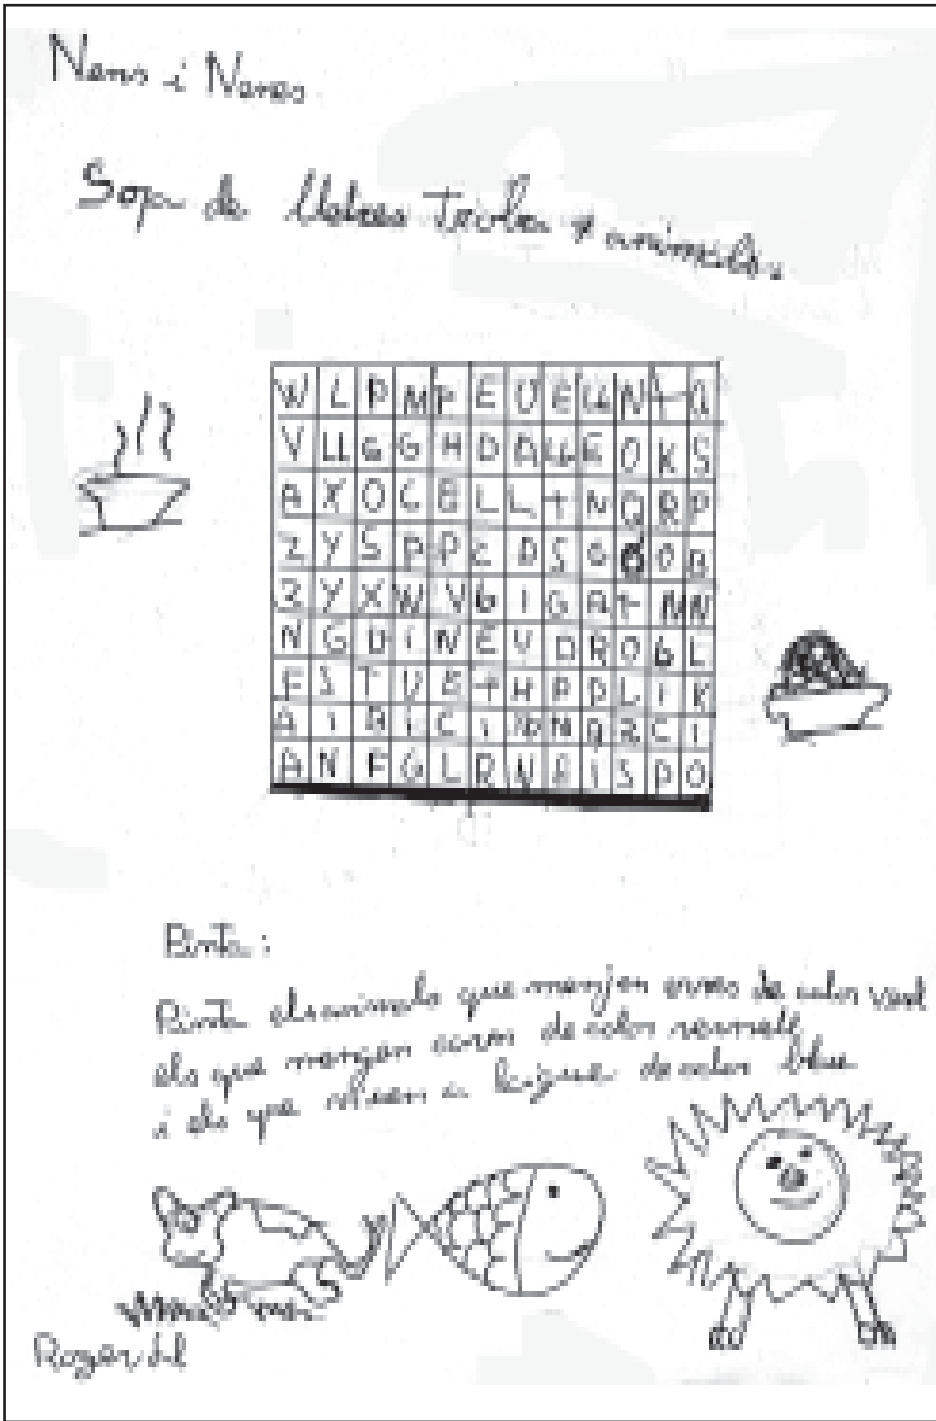 Nens i Nenes
Sopa de lletres troba animals.
W L P M P E U E N T A
V LL G G H D A E O K S
A X O C E L L T N Q R P
Z Y S P P E D S G O B
Z Y X W V G I G A T M N
N G D I N E V D R O G L
F S T U B T H P D L I K
A I A I C I N A C I
A N F G L R N A I S P O
Pinta:
Pinta els animals que menjen erves de color verd
els que menjen carn de color vermell
i els que viuen a l'aigua de color blue
Roger